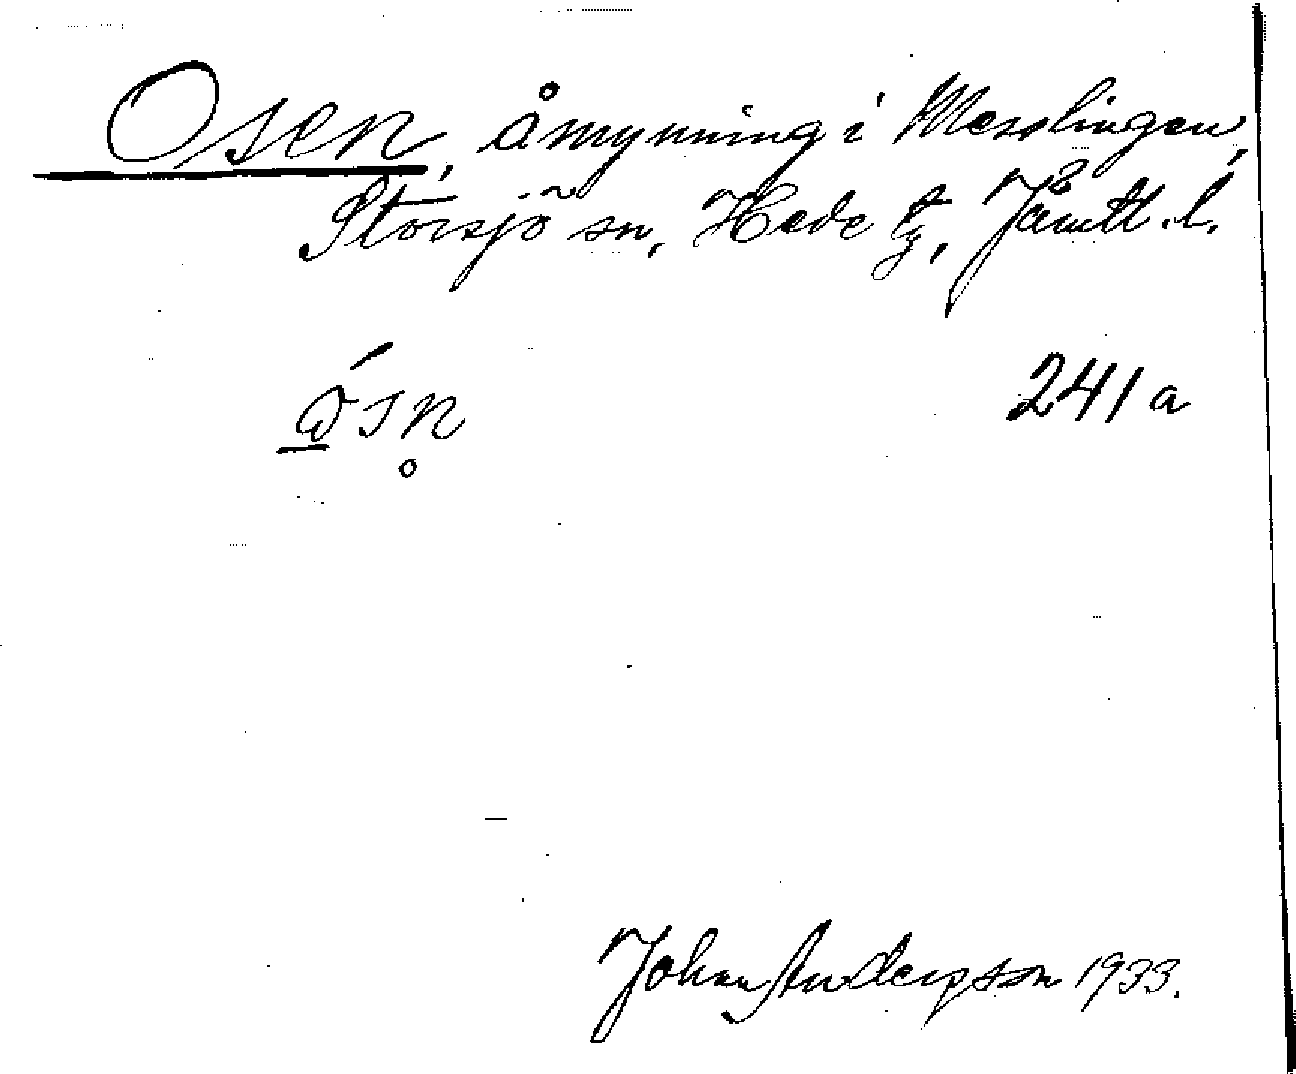 Osen, åmynning i Messlingen,
Storsjö sn, Hede tg, Jämtl. l.
241 a
Johan Andersson 1933.